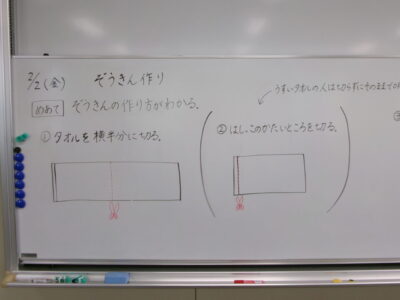 2/2(金) ぞうきん作り
めあて ぞうきんの作り方がわかる。
①タオルを横半分に切る。
うすいタオルの人は切らずにそのままでOK
②はしっこのかたいところを切る。
③